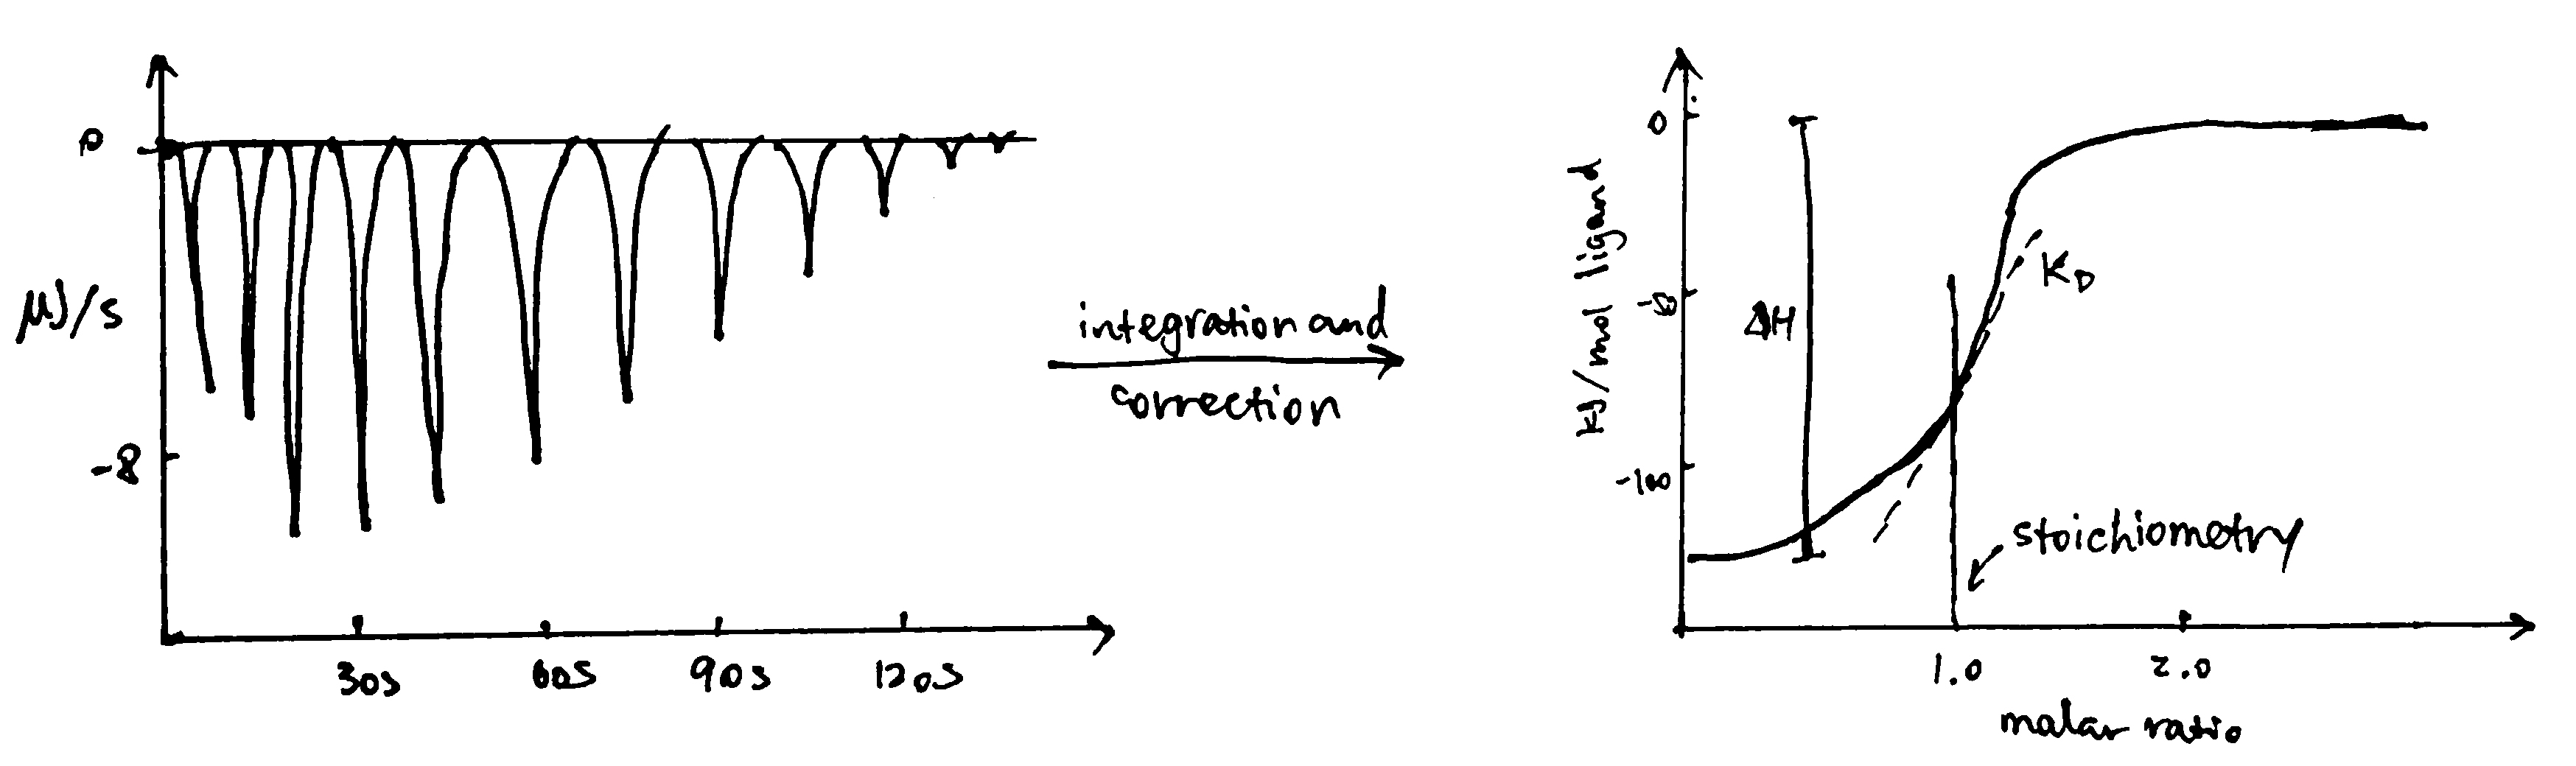 0
μJ/s
-8
30s 60s 90s 120s
integration and
correction
kJ/mol ligand
0
-50
-100
ΔH
KD
stoichiometry
1.0 2.0
malar ratio